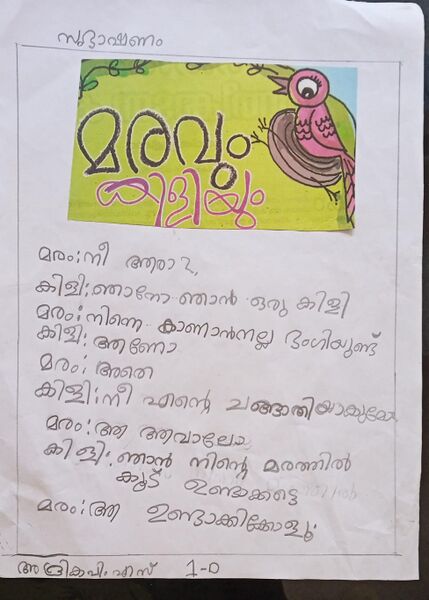 സഭാഷണം
മരവും
കിളിയും
മരം:നീ ആരാ?
കിളി:ഞാനോ ഞാൻ ഒരു കിളി
മരം:നിന്നെ കാണാൻനല്ല ഭംഗിയുണ്ട്
കിളി:ആണോ
മരം:അതെ
കിളി:നീ എന്റെ ചങ്ങാതിയാകുമോ
മരം:ആ ആവാലോ
കിളി:ഞാൻ നിന്റെ മരത്തിൽ
കൂട് ഉണ്ടാക്കട്ടെ
മരം:ആ ഉണ്ടാക്കിക്കോളൂ
എസ് 1-D